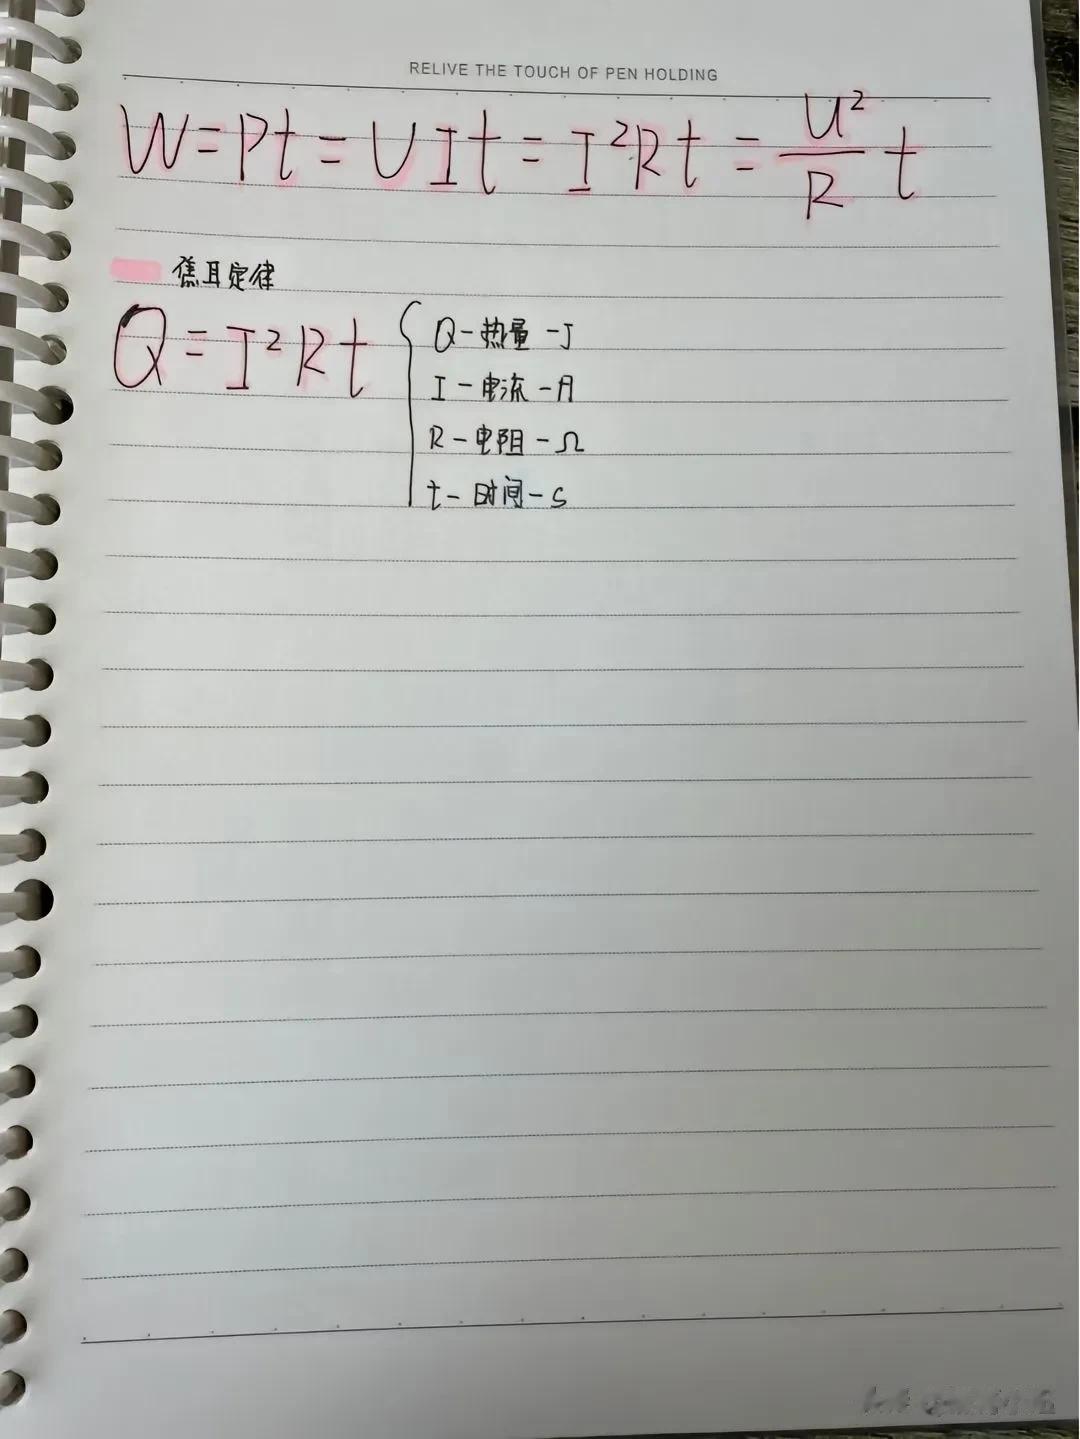 RELIVE THE TOUCH OF PEN HOLDING
W=Pt=UIt=I²Rt=U²/R t
焦耳定律
Q=I²Rt
Q-热量-J
I-电流-A
R-电阻-Ω
t-时间-s